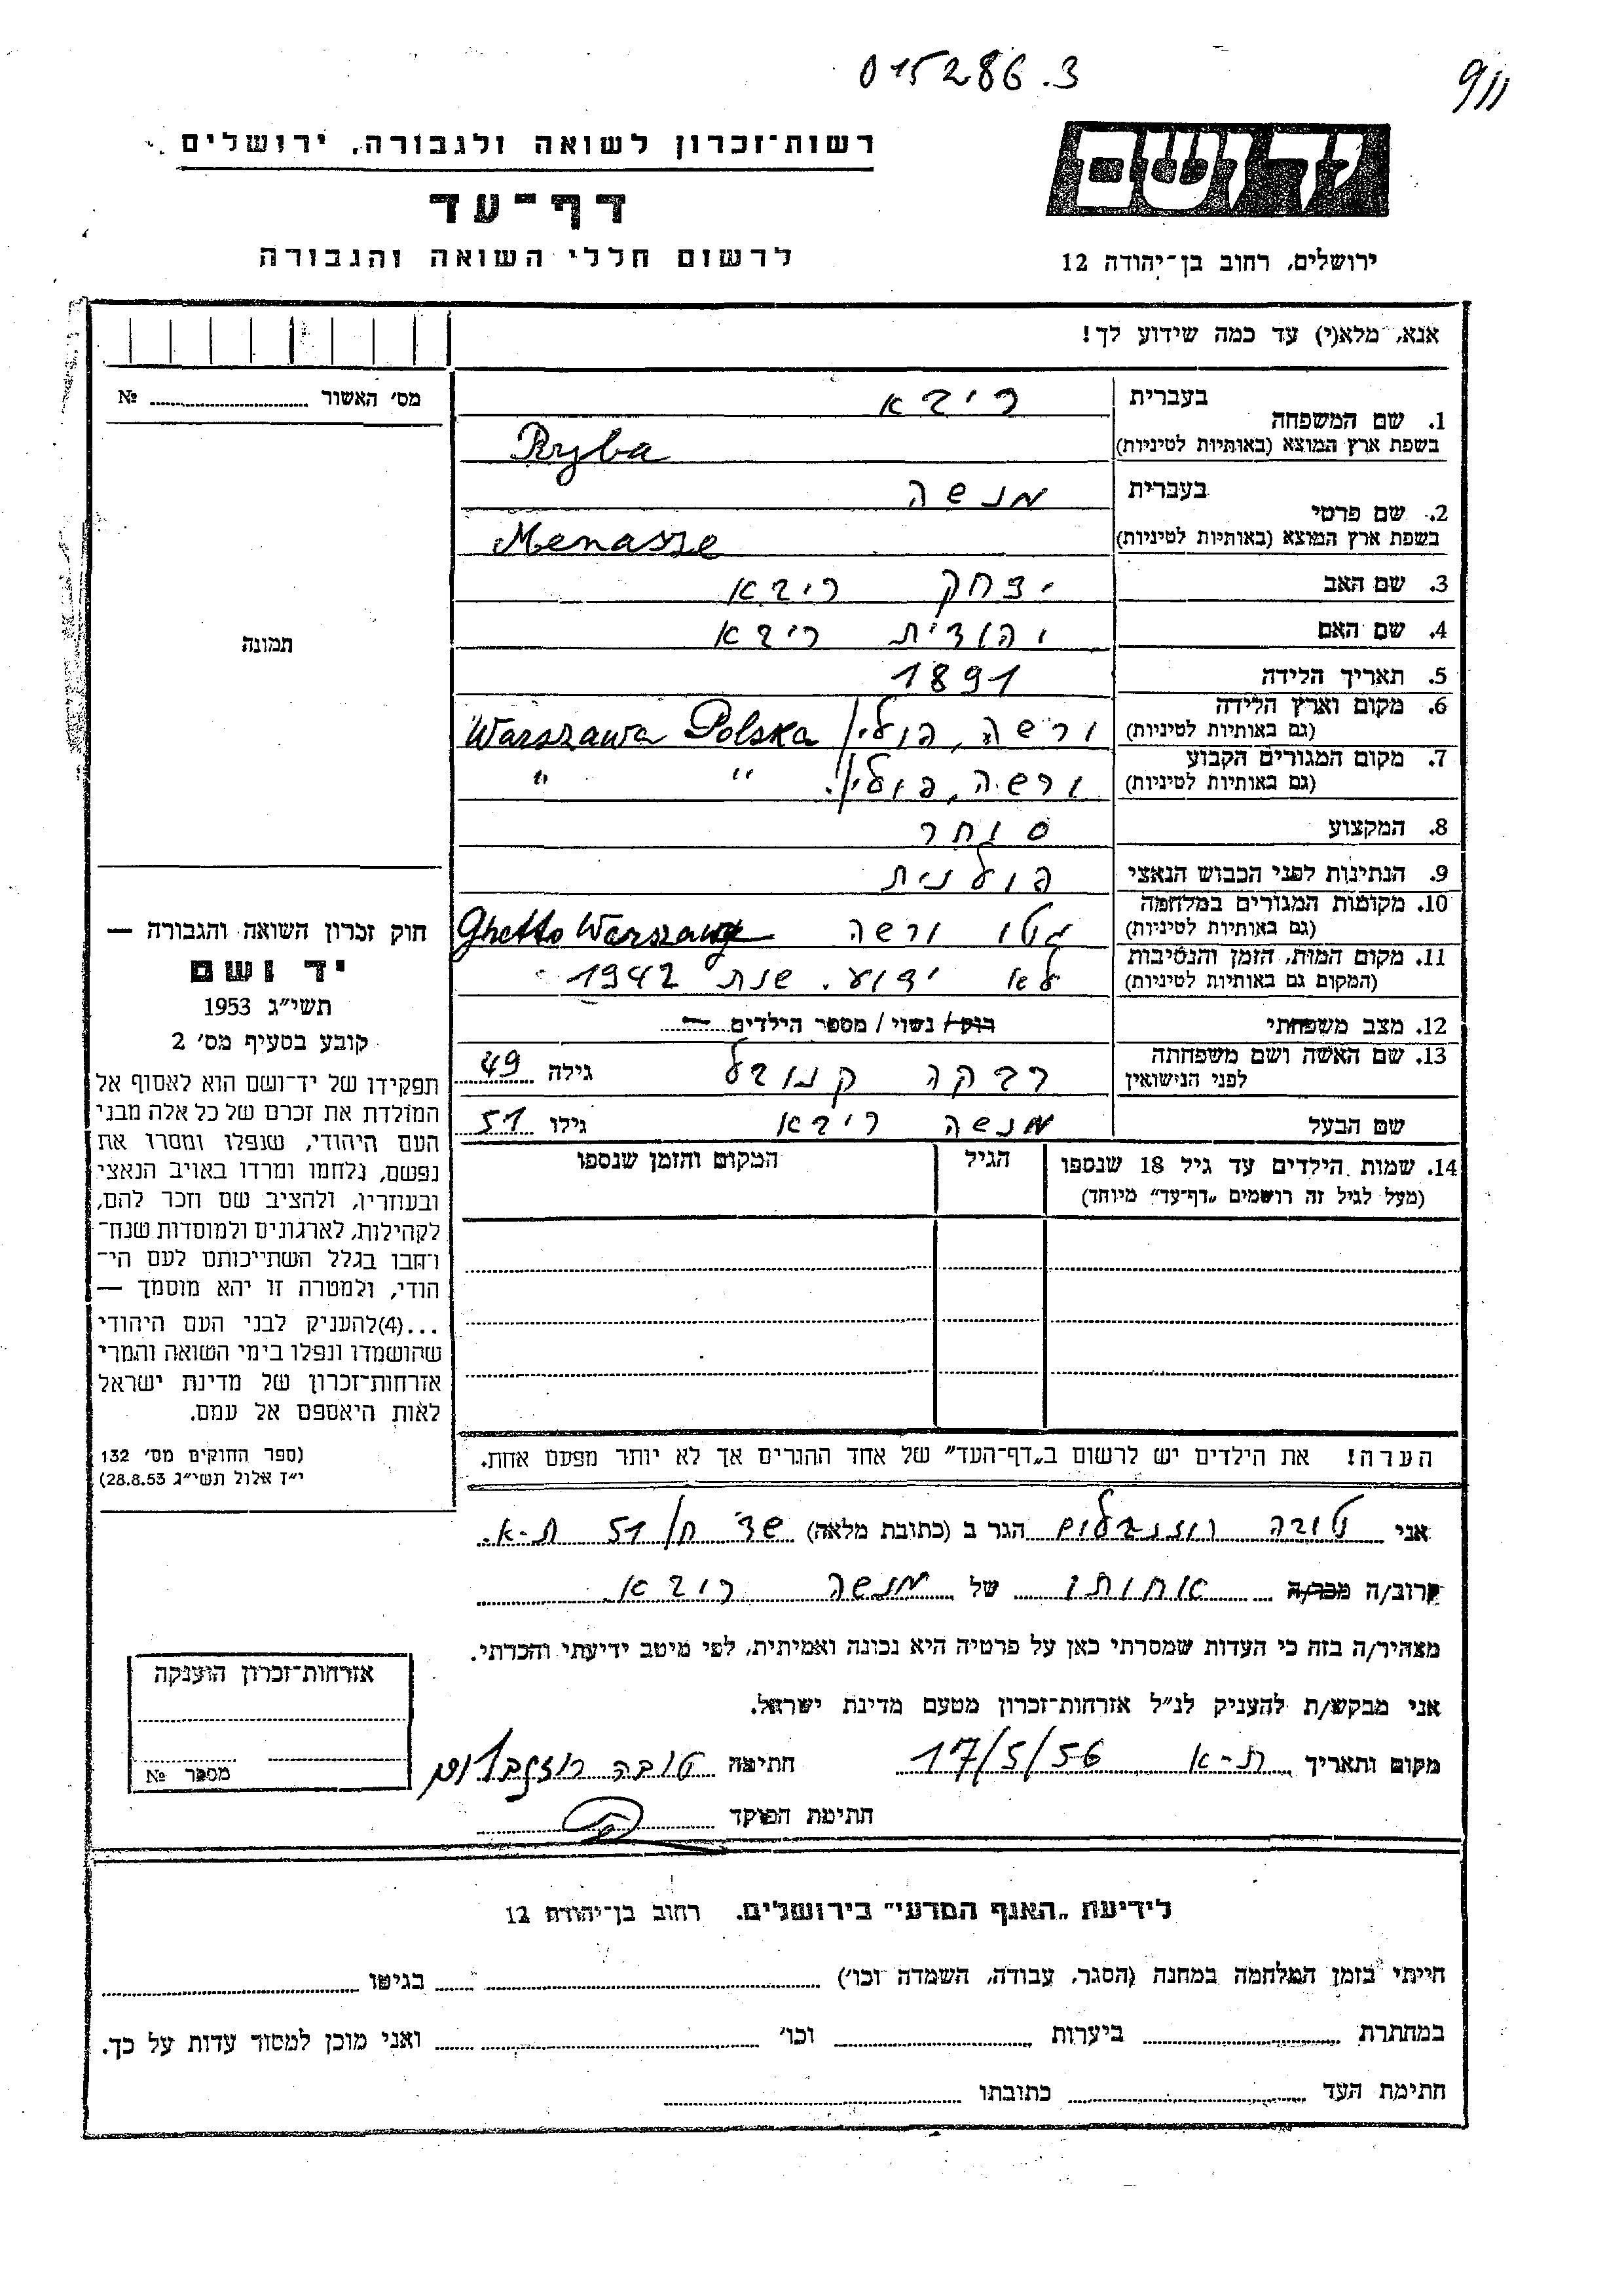 015286.3
יד ושם
רשות־זכרון לשואה ולגבורה, ירושלים
דף־עד
לרשום חללי השואה והגבורה
ירושלים, רחוב בן־יהודה 12
אנא, מלא(י) עד כמה שידוע לך!
מס׳ האשור ........ №
תמונה
1. שם המשפחה
בעברית ריבא
בשפת ארץ המוצא (באותיות לטיניות) Ryba
2. שם פרטי
בעברית מנשה
בשפת ארץ המוצא (באותיות לטיניות) Menasze
3. שם האב יצחק ריבא
4. שם האם יהודית ריבא
5. תאריך הלידה 1891
6. מקום וארץ הלידה (גם באותיות לטיניות) ורשה, פולין Warszawa Polska
7. מקום המגורים הקבוע (גם באותיות לטיניות) ורשה, פולין. " "
8. המקצוע סוחר
9. הנתינות לפני הכבוש הנאצי פולנית
10. מקומות המגורים במלחמה (גם באותיות לטיניות) גטו ורשה Ghetto Warszawa
11. מקום המות, הזמן והנסיבות (המקום גם באותיות לטיניות) לא ידוע. שנת 1942
12. מצב משפחתי רוק/ נשוי / מספר הילדים —
13. שם האשה ושם משפחתה לפני הנישואין רבקה גילה 49
שם הבעל מנשה ריבא גילו 51
14. שמות הילדים עד גיל 18 שנספו (מעל לגיל זה רושמים „דף־עד״ מיוחד)
הגיל
המקום והזמן שנספו
הערה! את הילדים יש לרשום ב„דף־העד״ של אחד ההורים אך לא יותר מפעם אחת.
חוק זכרון השואה והגבורה —
יד ושם
תשי״ג 1953
קובע בסעיף מס׳ 2
תפקידו של יד־ושם הוא לאסוף אל
המולדת את זכרם של כל אלה מבני
העם היהודי, שנפלו ומסרו את
נפשם, נלחמו ומרדו באויב הנאצי
ובעוזריו, ולהציב שם וזכר להם,
לקהילות, לארגונים ולמוסדות שנח־
רחבו בגלל השתייכותם לעם הי־
הודי, ולמטרה זו יהא מוסמך —
...(4)להעניק לבני העם היהודי
שהושמדו ונפלו בימי השואה והמרי
אזרחות־זכרון של מדינת ישראל
לאות היאספם אל עמם.
(ספר החוקים מס׳ 132
י״ז אלול תשי״ג 28.8.53)
אני טובה רוזנבלום הגר ב (כתובת מלאה) 51 ת-א.
קרוב/ה מכר/ה אחותו של מנשה ריבא.
מצהיר/ה בזה כי העדות שמסרתי כאן על פרטיה היא נכונה ואמיתית, לפי מיטב ידיעתי והכרתי.
אני מבקש/ת להעניק לנ״ל אזרחות־זכרון מטעם מדינת ישראל.
מקום ותאריך ת-א 17/5/56 חתימה טובה רוזנבלום
חתימת הפוקד
אזרחות־זכרון הוענקה
מספר №
לידיעת „האגף המדעי״ בירושלים. רחוב בן־יהודה 12
חייתי בזמן המלחמה במחנה (הסגר, עבודה, השמדה וכו׳) ........ בגיטו ........
במחתרת ........ ביערות ........ וכו׳ ........ ואני מוכן למסור עדות על כך.
חתימת העד ........ כתובתו ........